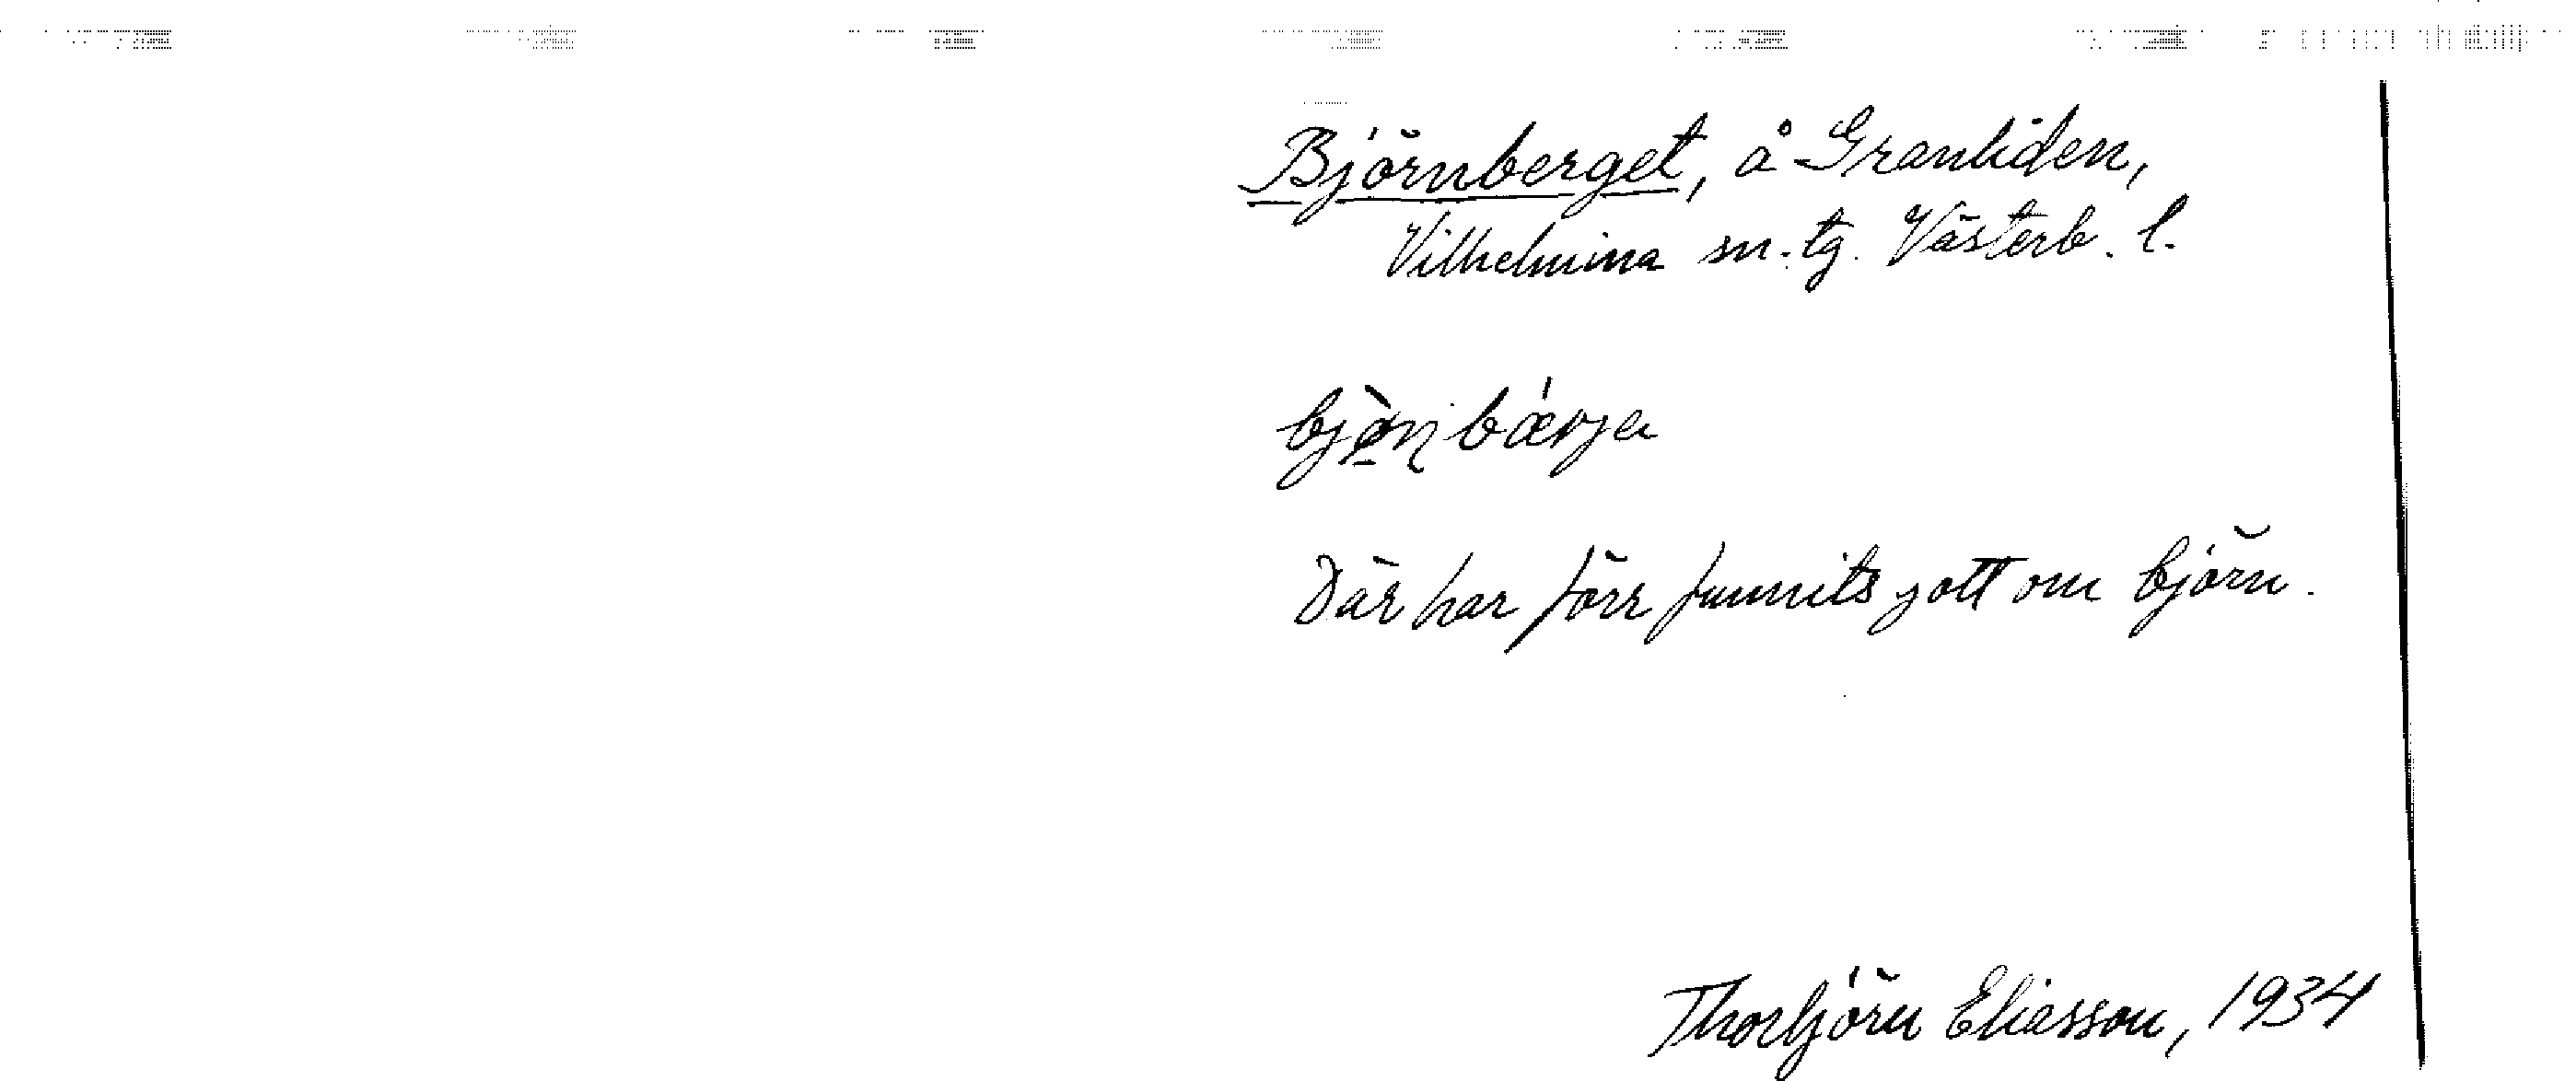 Björnberget, å Granliden,
Vilhelmina sn. tg. Västerb. l.
bjø̀ɳbǽrja
Där har förr funnits gott om björn.
Thorbjörn Eliasson, 1934